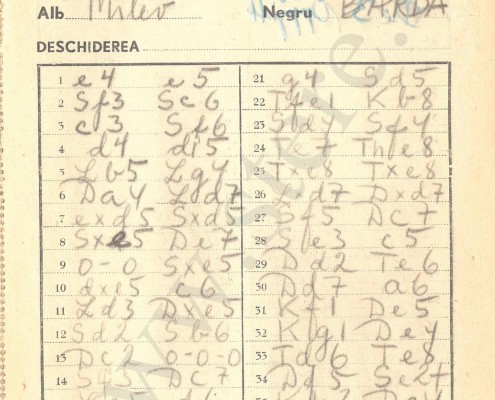 Alb Milev Negru BARDA
DESCHIDEREA
1 e4 e5
2 Sf3 Sc6
3 c3 Sf6
4 d4 d5
5 Lb5 Lg4
6 Da4 Lgd7
7 exd5 Sxd5
8 Sxe5 De7
9 0-0 Sxe5
10 dxe5 c6
11 Ld3 Dxe5
12 Sd2 Sb6
13 Dc2 0-0-0
14 Dc7
21 g4 Sd5
22 Tfe1 Kb8
23 Sd4 Sf4
24 The8
25 Txe8 Txe8
26 Dxd7
27 Sf5 Dc7
28 Se3 c5
29 Dd2 Te6
30 Dd7 a6
31 Kf1 De5
32 Kg1 De4
33 Td6 Te8
34
35